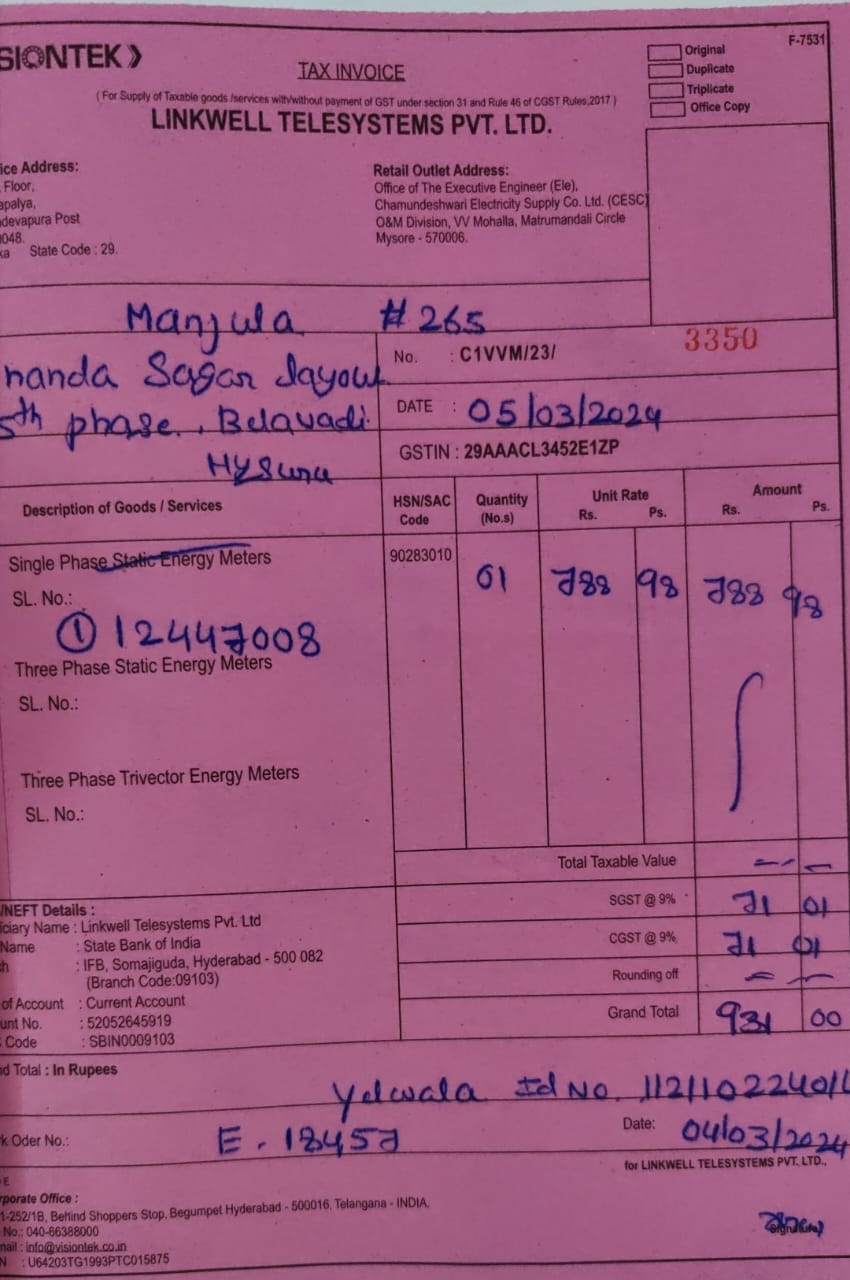 SIONTEK
F-7531
TAX INVOICE
Original
Duplicate
Triplicate
Office Copy
( For Supply of Taxable goods /services with/without payment of GST under section 31 and Rule 46 of CGST Rules,2017 )
LINKWELL TELESYSTEMS PVT. LTD.
ice Address:
Floor,
apalya,
devapura Post
048.
ka State Code : 29.
Retail Outlet Address:
Office of The Executive Engineer (Ele),
Chamundeshwari Electricity Supply Co. Ltd. (CESC)
O&M Division, VV Mohalla, Matrumandali Circle
Mysore - 570006.
Manjula # 265
nanda Sagar layout
5th phase., Belavadi
Mysuru
No. : C1VVM/23/ 3350
DATE : 05/03/2024
GSTIN : 29AAACL3452E1ZP
Description of Goods / Services HSN/SAC Code Quantity (No.s) Unit Rate Rs. Ps. Amount Rs. Ps.
Single Phase Static Energy Meters 90283010 01 788 98 788 98
SL. No.:
① 12447008
Three Phase Static Energy Meters
SL. No.:
Three Phase Trivector Energy Meters
SL. No.:
Total Taxable Value
SGST @ 9% 71 01
CGST @ 9% 71 01
Rounding off
Grand Total 931 00
/NEFT Details :
iciary Name : Linkwell Telesystems Pvt. Ltd
Name : State Bank of India
h : IFB, Somajiguda, Hyderabad - 500 082
(Branch Code:09103)
of Account : Current Account
unt No. : 52052645919
Code : SBIN0009103
d Total : In Rupees
Yelwala Id No.
k Oder No.: E. 18457
Date: 04/03/2024
for LINKWELL TELESYSTEMS PVT. LTD.,
E
rporate Office :
1-252/1B, Behind Shoppers Stop, Begumpet Hyderabad - 500016, Telangana - INDIA.
No.: 040-66388000
mail : info@visiontek.co.in
N : U64203TG1993PTC015875